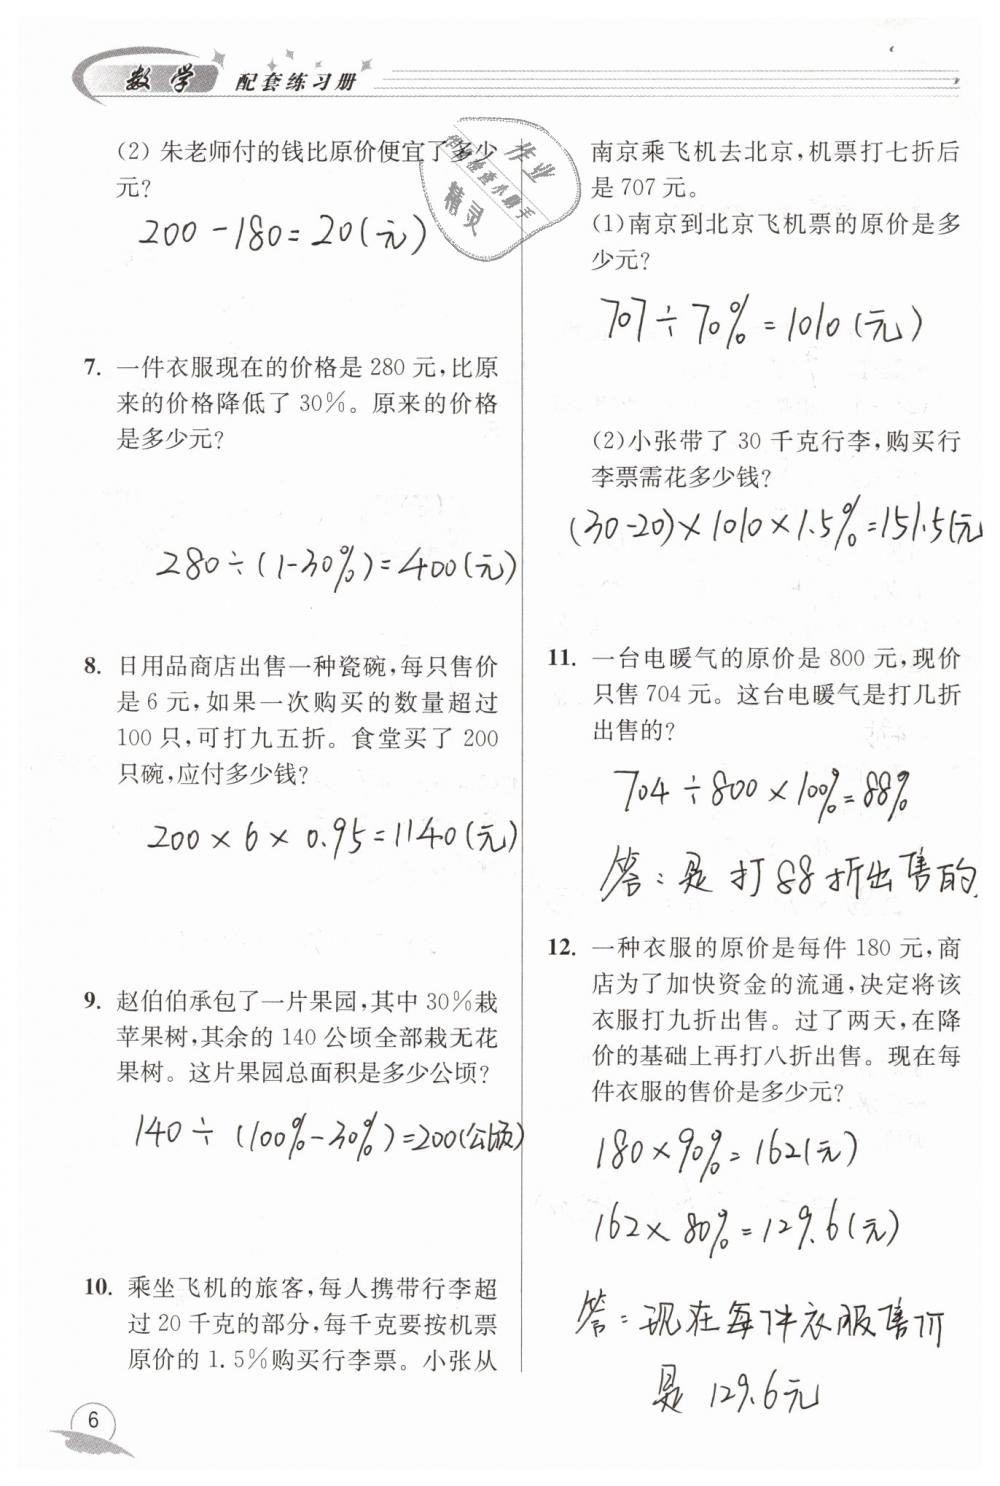 数学 配套练习册
(2) 朱老师付的钱比原价便宜了多少
元?
200-180=20(元)
7. 一件衣服现在的价格是 280 元,比原
来的价格降低了 30%。原来的价格
是多少元?
280÷(1-30%)=400(元)
8. 日用品商店出售一种瓷碗,每只售价
是 6 元,如果一次购买的数量超过
100 只,可打九五折。食堂买了 200
只碗,应付多少钱?
200×6×0.95=1140(元)
9. 赵伯伯承包了一片果园,其中 30%栽
苹果树,其余的 140 公顷全部栽无花
果树。这片果园总面积是多少公顷?
140÷(100%-30%)=200(公顷)
10. 乘坐飞机的旅客,每人携带行李超
过 20 千克的部分,每千克要按机票
原价的 1.5%购买行李票。小张从
南京乘飞机去北京,机票打七折后
是 707 元。
(1)南京到北京飞机票的原价是多
少元?
707÷70%=1010(元)
(2)小张带了 30 千克行李,购买行
李票需花多少钱?
(30-20)×1010×1.5%=151.5(元
11. 一台电暖气的原价是 800 元,现价
只售 704 元。这台电暖气是打几折
出售的?
704÷800×100%=88%
答:是打88折出售的
12. 一种衣服的原价是每件 180 元,商
店为了加快资金的流通,决定将该
衣服打九折出售。过了两天,在降
价的基础上再打八折出售。现在每
件衣服的售价是多少元?
180×90%=162(元)
162×80%=129.6(元)
答:现在每件衣服售价
是 129.6元
6
作业
检查小助手
精灵